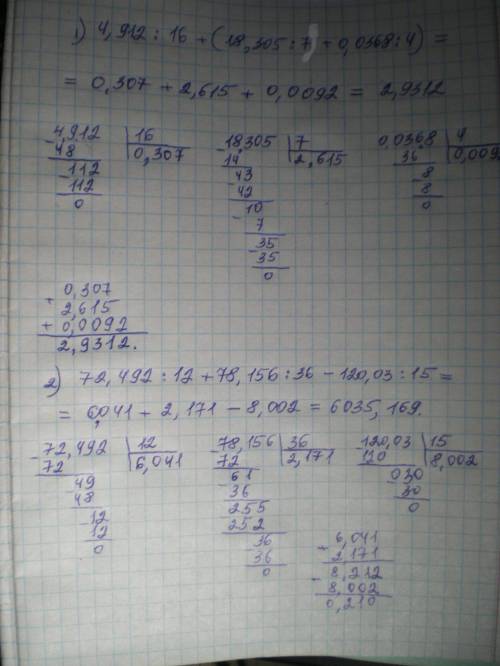 1) 4,912 : 16 + (18,305 : 7) + 0,0368 : 4) =
= 0,307 + 2,615 + 0,0092 = 2,9312
-4,912 16
48 0,307
-112
112
0
-18,305 7
14 2,615
-43
42
-10
7
-35
35
0
0,0368 4
36 0,009
-8
8
0
0,307
2,615
+ 0,0092
2,9312.
2) 72,492 : 12 + 78,156 : 36 - 120,03 : 15 =
= 6,041 + 2,171 - 8,002 = 6035,169.
-72,492 12
72 6,041
-49
48
-12
12
0
78,156 36
72 2,171
-61
36
-255
252
-36
36
0
-120,03 15
120 8,002
030
-30
0
6,041
+ 2,171
- 8,212
8,002
0,210